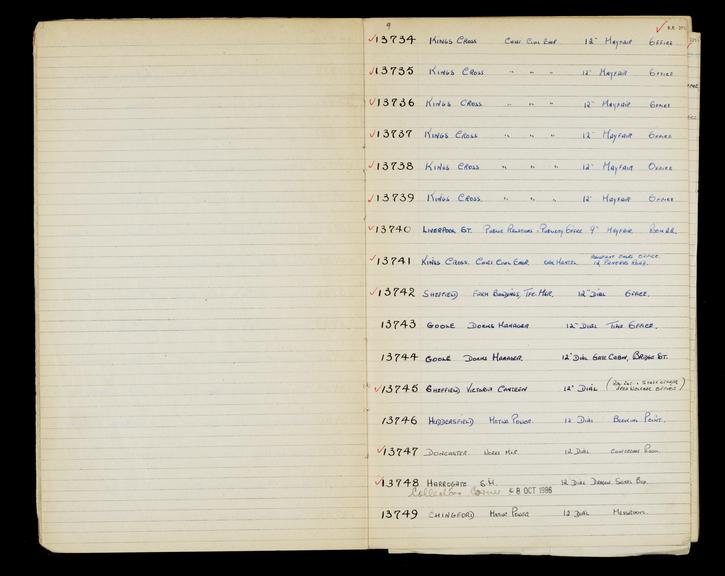 9
13734 Kings Cross Chief Civil Engr 12" Mayfair Office
13735 Kings Cross " " " 12" Mayfair Office
13736 Kings Cross " " " 12" Mayfair Office
13737 Kings Cross " " " 12" Mayfair Office
13738 Kings Cross " " " 12" Mayfair Office
13739 Kings Cross. " " " 12" Mayfair Office
13740 Liverpool St. Public Relations & Publicity Office 9" Mayfair
13741 Kings Cross. Chief Civil Engr. Oak Mantel
13742 Sheffield Farm Buildings, Tfc. Mgr. 12" Dial Office.
13743 Goole Docks Manager 12" Dial Time Office.
13744 Goole Docks Manager. 12" Dial Gate Cabin, Bridge St.
13745 Sheffield Victoria Canteen 12" Dial
13746 Huddersfield Motive Power. 12 Dial Booking Point.
13747 Doncaster Works Mgr. 12 Dial Conference Room.
13748 Harrogate S.M. 12 Dial Dragon Signal Box
Collectors Corner 8 OCT 1986
13749 Chingford Motive Power 12 Dial Messroom.